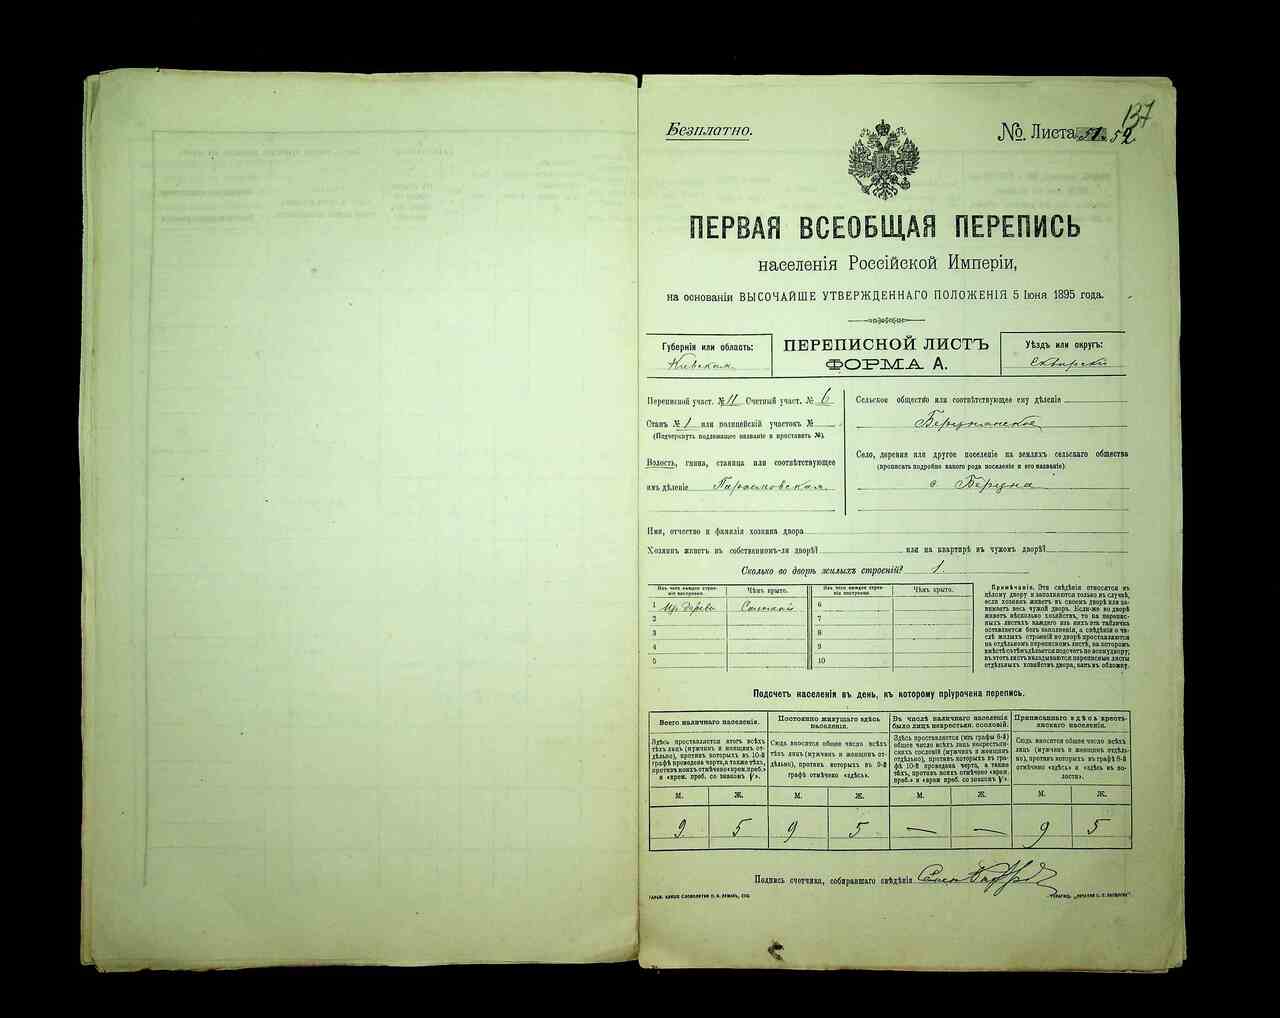 137
Безплатно.
№. Листа 51. 52
ПЕРВАЯ ВСЕОБЩАЯ ПЕРЕПИСЬ
населенія Россійской Имперіи,
на основаніи ВЫСОЧАЙШЕ УТВЕРЖДЕННАГО ПОЛОЖЕНІЯ 5 Іюня 1895 года.
Губернія или область:
Кіевская
ПЕРЕПИСНОЙ ЛИСТЪ
ФОРМА А.
Уѣздъ или округъ:
Сквирскій
Переписной участ. № 11 Счетный участ. № 6
Станъ № 1 или полицейскій участокъ №
(Подчеркнуть подлежащее названіе и проставить №).
Волость, гмина, станица или соотвѣтствующее
имъ дѣленіе
Сельское общество или соотвѣтствующее ему дѣленіе
Село, деревня или другое поселеніе на земляхъ сельскаго общества
(прописать подробно какого рода поселеніе и его названіе):
с
Имя, отчество и фамилія хозяина двора
Хозяинъ живетъ въ собственномъ-ли дворѣ? или на квартирѣ въ чужомъ дворѣ?
Сколько во дворѣ жилыхъ строеній? 1.
Изъ чего каждое строеніе построено. Чѣмъ крыто. Изъ чего каждое строеніе построено. Чѣмъ крыто.
1 Из дерева 6
2 7
3 8
4 9
5 10
Примѣчаніе. Эти свѣдѣнія относятся къ
цѣлому двору и заполняются только въ случаѣ,
если хозяинъ живетъ въ своемъ дворѣ или занимаетъ
весь чужой дворъ. Если-же во дворѣ
живетъ нѣсколько хозяйствъ, то на переписныхъ
листахъ каждаго изъ нихъ эта табличка
оставляется безъ заполненія, а свѣдѣнія о числѣ
жилыхъ строеній во дворѣ проставляются
на отдѣльномъ переписномъ листѣ, на которомъ
вмѣстѣ съ тѣмъ дѣлается подсчетъ по всему двору;
въ этотъ листъ вкладываются переписные листы
отдѣльныхъ хозяйствъ двора, какъ въ обложку.
Подсчетъ населенія въ день, къ которому пріурочена перепись.
Всего наличнаго населенія.
Здѣсь проставляется итогъ всѣхъ
тѣхъ лицъ (мужчинъ и женщинъ отдѣльно),
противъ которыхъ въ 10-й
графѣ проведена черта, а также тѣхъ,
противъ коихъ отмѣчено «врем. преб.»
и «врем. преб. со знакомъ V».
Постоянно живущаго здѣсь
населенія.
Сюда вносится общее число всѣхъ
тѣхъ лицъ (мужчинъ и женщинъ отдѣльно),
противъ которыхъ въ 9-й
графѣ отмѣчено «здѣсь».
Въ числѣ наличнаго населенія
было лицъ некрестьян. сословій.
Здѣсь проставляется (изъ графы 6-й)
общее число всѣхъ лицъ некрестьянскихъ
сословій (мужчинъ и женщинъ
отдѣльно), противъ которыхъ въ графѣ
10-й проведена черта, а также
тѣхъ, противъ коихъ отмѣчено «врем.
преб.» и «врем. преб. со знакомъ V».
Приписаннаго здѣсь крестьянскаго
населенія.
Сюда вносится общее число всѣхъ
лицъ (мужчинъ и женщинъ отдѣльно),
противъ которыхъ въ графѣ 8-й
отмѣчено «здѣсь» и «здѣсь въ волости».
М. Ж. М. Ж. М. Ж. М. Ж.
9 5 9 5 — — 9 5
Подпись счетчика, собиравшаго свѣдѣнія